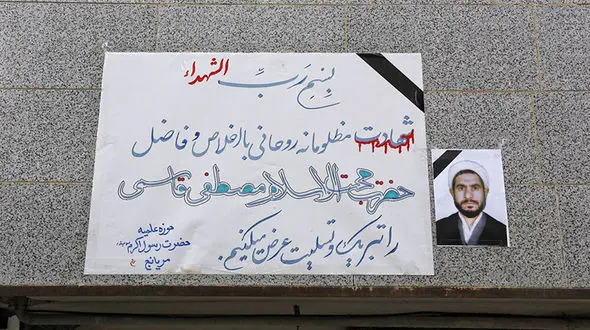 بسم رب الشهداء
شهادت مظلومانه روحانی بااخلاص و فاضل
حضرت حجت الاسلام مصطفی قاسمی
را تبریک و تسلیت عرض میکنیم.
حوزه علمیه
حضرت رسول اکرم
مریانج